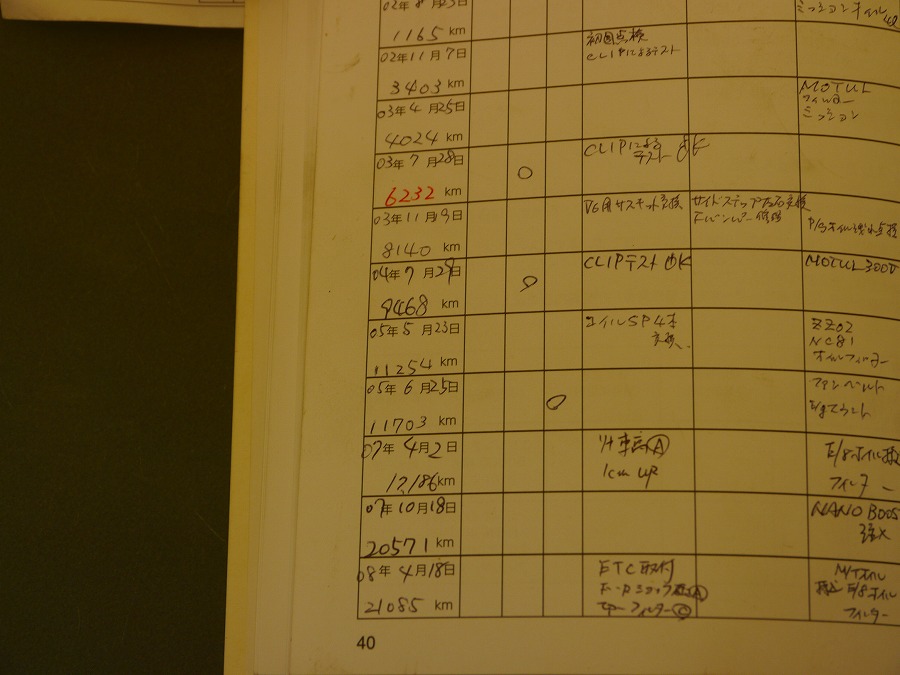 02年8月23日 ミッションオイル
1165 km
02年11月7日 初回点検
CLIPによるテスト
3403 km
03年4月25日 MOTUL
ミッション
4024 km
03年7月28日 CLIPによる
テスト OK
6232 km
03年11月9日 交換 サイドステップ左右交換
Fバンパー P/Sオイル 点検
8140 km
04年7月29日 CLIPテスト OK MOTUL 300V
9468 km
05年5月23日 SP4本 ZZ02
交換 NC81
オイルフィルター
11254 km
05年6月25日 ファンベルト
E/gマウント
11703 km
07年4月2日 車高 A E/gオイル
1cm UP
17,186 km フィルター
07年10月18日 NANO BOOS
20571 km
08年4月18日 ETC取付 M/Tオイル
A E/gオイル
21085 km フィルター C フィルター
40